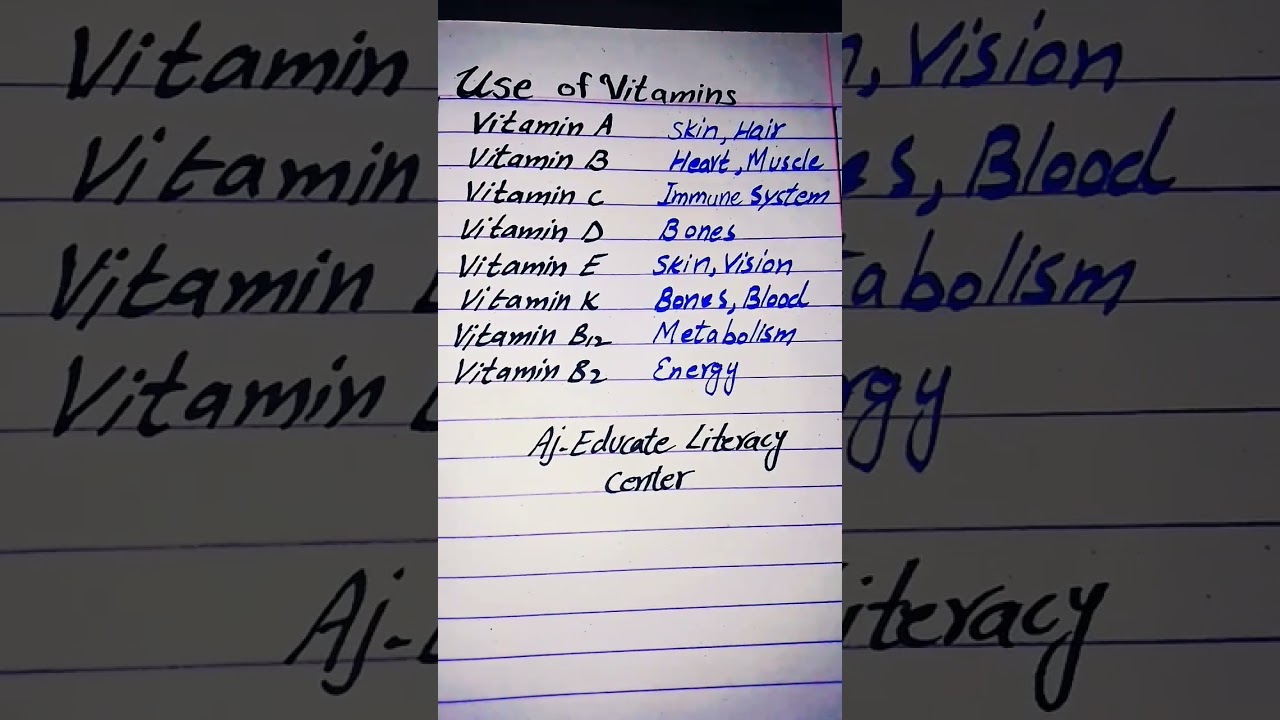 Use of Vitamins
Vitamin A Skin, Hair
Vitamin B Heart, Muscle
Vitamin C Immune System
Vitamin D Bones
Vitamin E Skin, Vision
Vitamin K Bones, Blood
Vitamin B12 Metabolism
Vitamin B2 Energy
Aj-Educate Literacy
Center